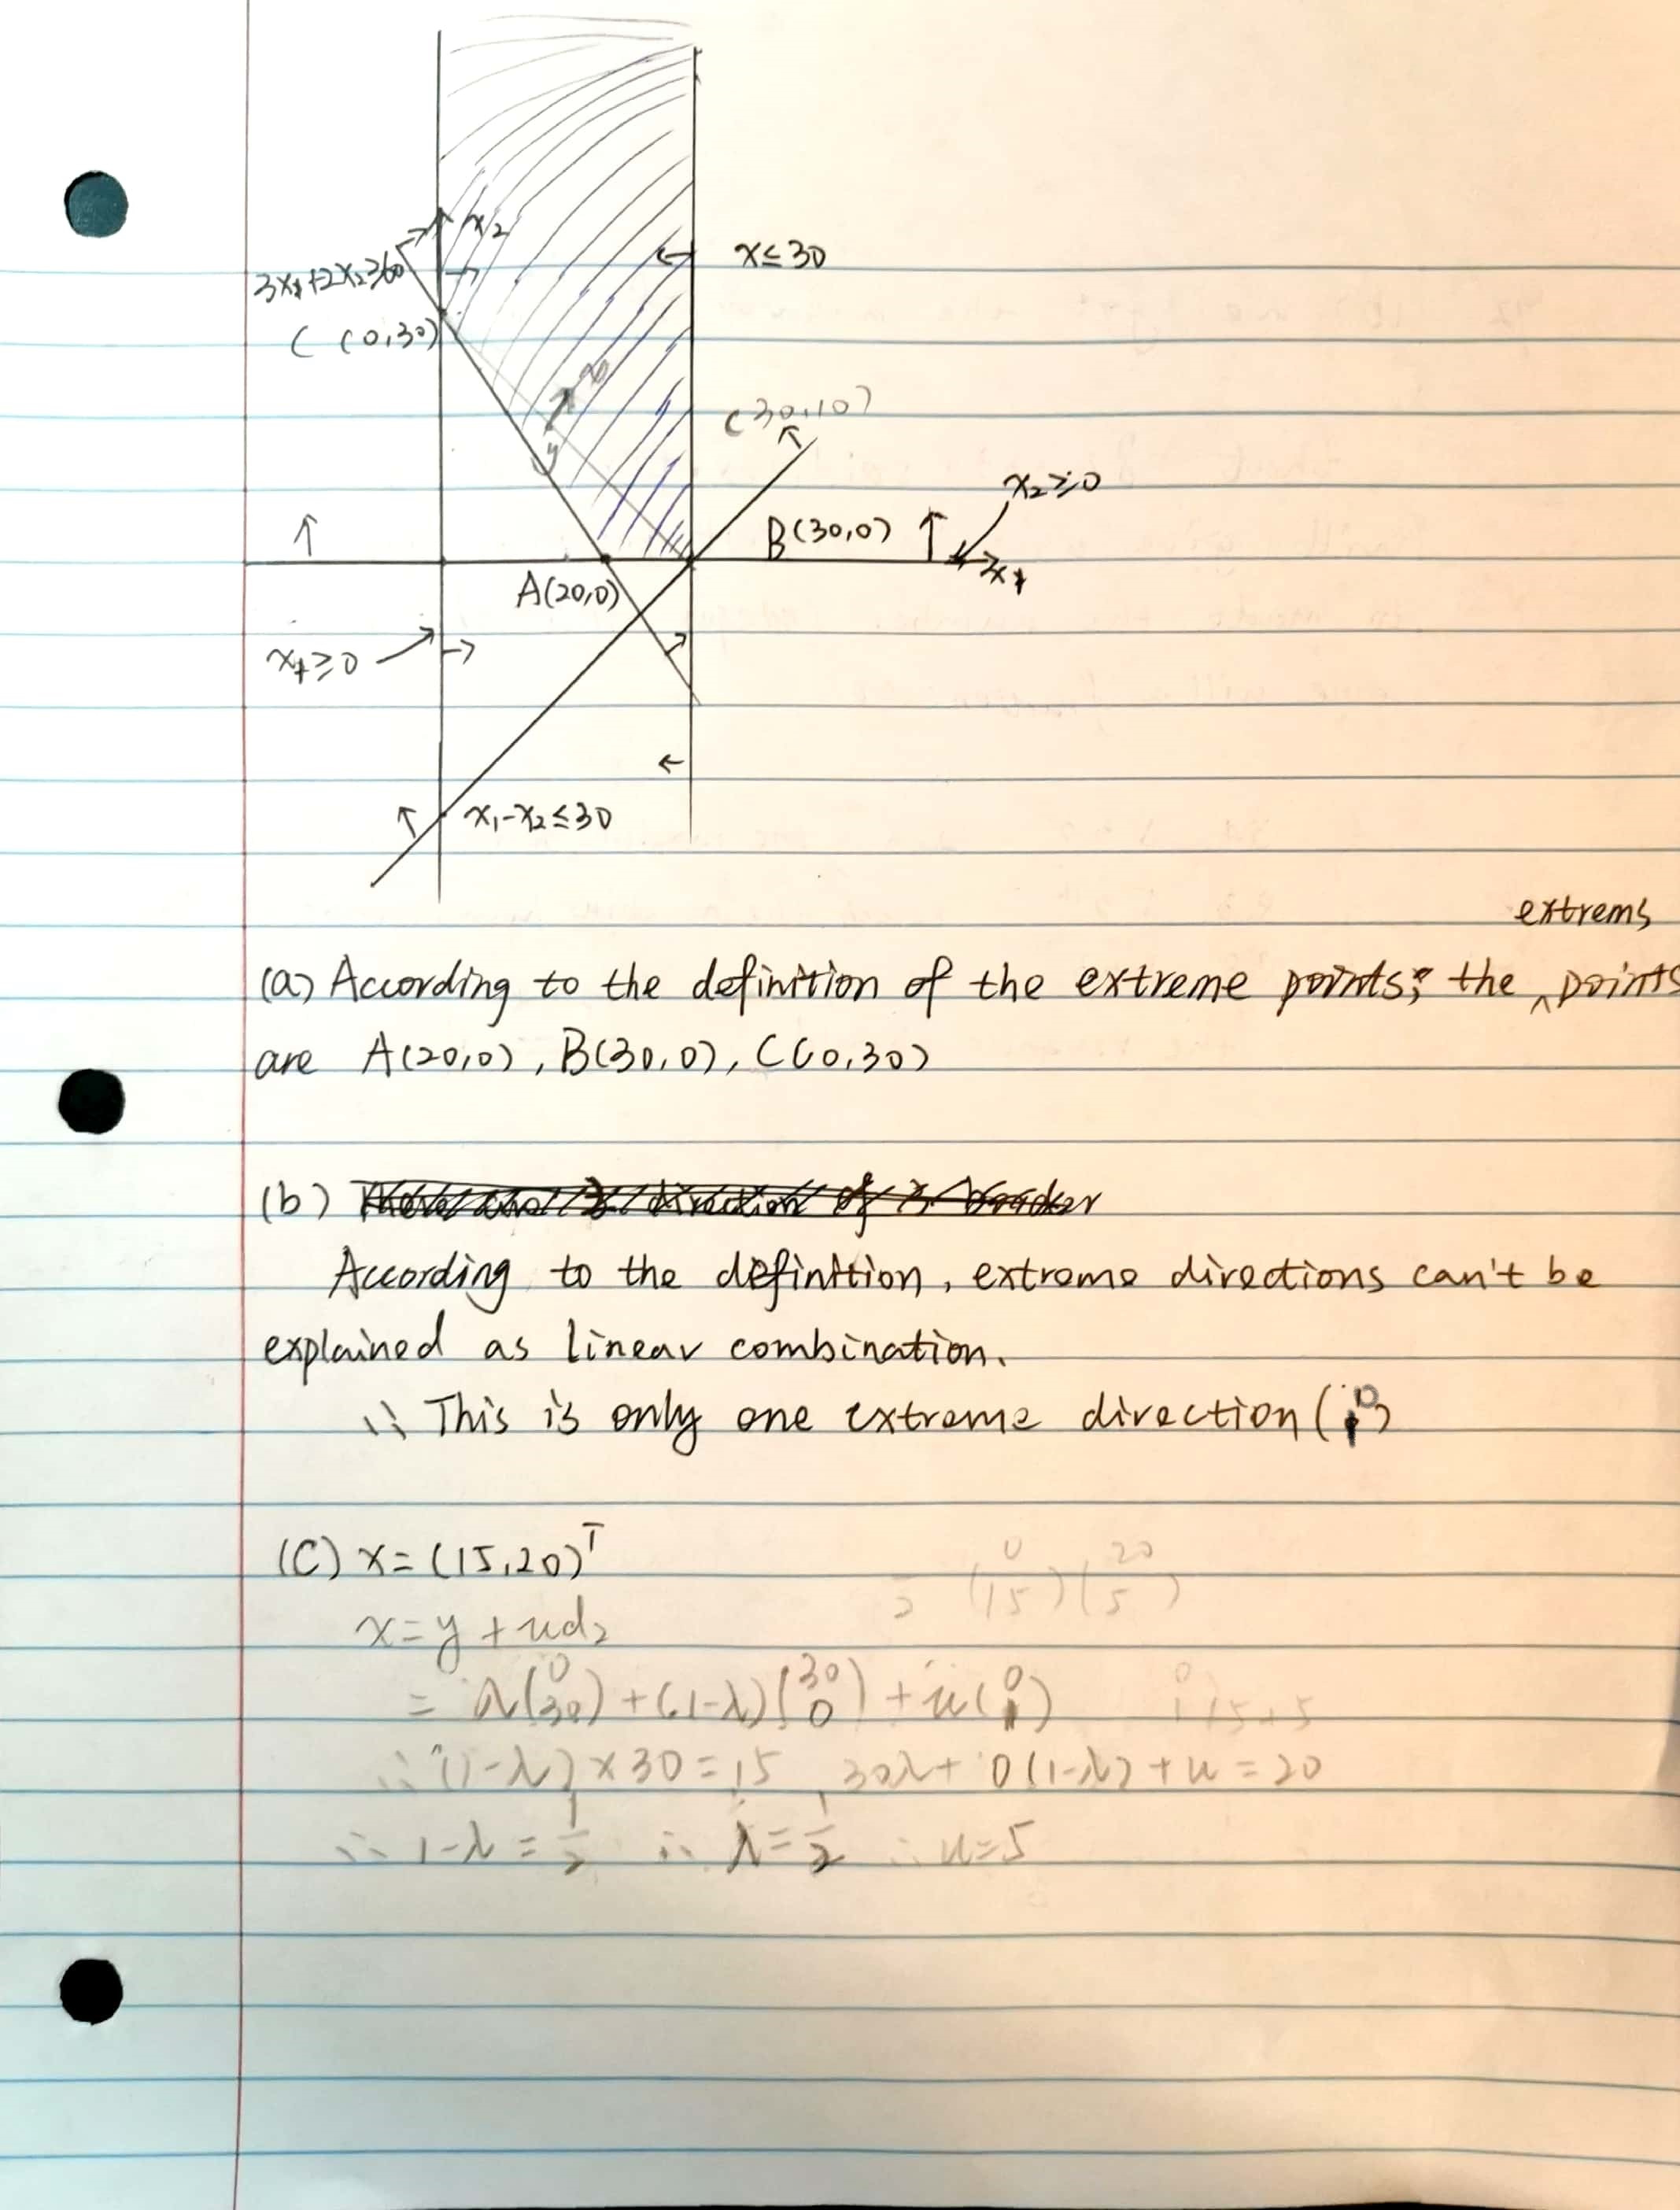 x₂
3x₁+2x₂≥60
x≤30
C (0,30)
(30,10)
x₂≥0
B(30,0)
x₁
A(20,0)
x₁≥0
x₁-x₂≤30
extrems
(a) According to the definition of the extreme points; the ^ points
are A(20,0), B(30,0), C(0,30)
(b)
According to the definition, extreme directions can't be
explained as linear combination.
∴ This is only one extreme direction (0 1)
(C) x=(15,20)ᵀ
(0 15) (20 5)
x=y+ud₂
= λ(0 30)+(1-λ)(30 0)+u(0 1)
∴ (1-λ)×30=15, 30λ+0(1-λ)+u=20
∴ 1-λ=1/2 ∴ λ=1/2 ∴ u=5